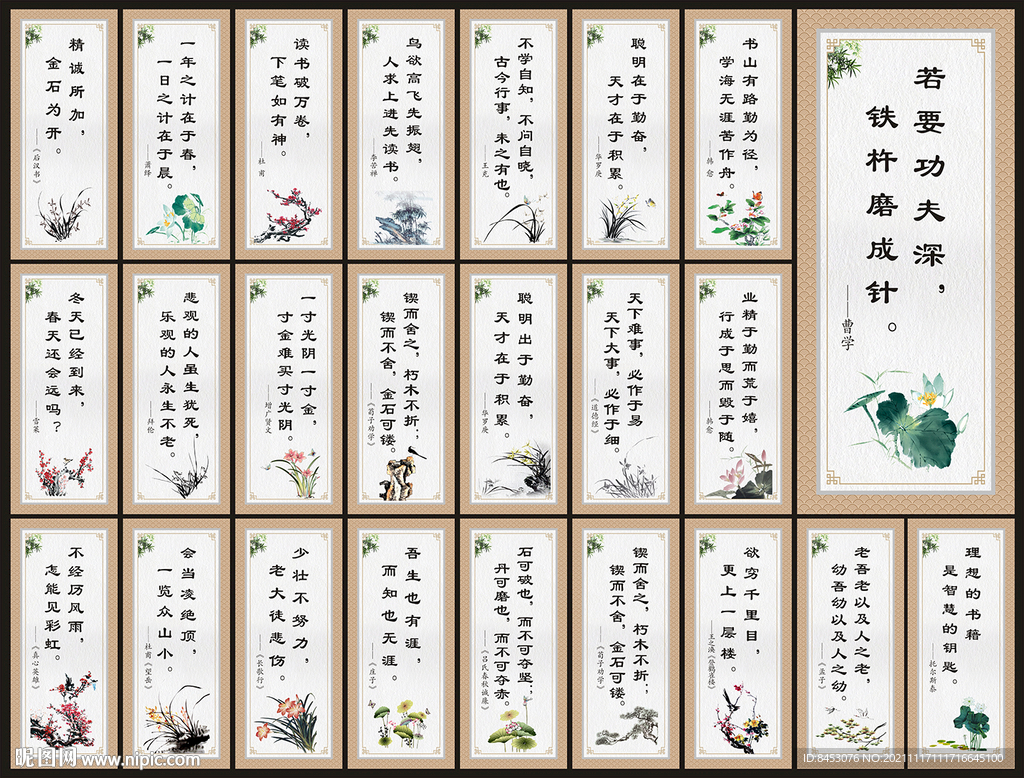 精诚所加，
金石为开。
——《后汉书》
一年之计在于春，
一日之计在于晨。
——萧绎
读书破万卷，
下笔如有神。
——杜甫
鸟欲高飞先振翅，
人求上进先读书。
——李苦禅
不学自知，不问自晓，
古今行事，未之有也。
——王充
聪明在于勤奋，
天才在于积累。
——华罗庚
书山有路勤为径，
学海无涯苦作舟。
——韩愈
若要功夫深，
铁杵磨成针。
——曹学
冬天已经到来，
春天还会远吗？
——雪莱
悲观的人虽生犹死，
乐观的人永生不老。
——拜伦
一寸光阴一寸金，
寸金难买寸光阴。
——增广贤文
锲而舍之，朽木不折；
锲而不舍，金石可镂。
——《荀子劝学》
聪明出于勤奋，
天才在于积累。
——华罗庚
天下难事，必作于易
天下大事，必作于细。
——《道德经》
业精于勤而荒于嬉，
行成于思而毁于随。
——韩愈
不经历风雨，
怎能见彩虹。
——《真心英雄》
会当凌绝顶，
一览众山小。
——杜甫《望岳》
少壮不努力，
老大徒悲伤。
——《长歌行》
吾生也有涯，
而知也无涯。
——《庄子》
石可破也，而不可夺坚；
丹可磨也，而不可夺赤。
——《吕氏春秋诚廉》
锲而舍之，朽木不折；
锲而不舍，金石可镂。
——《荀子劝学》
欲穷千里目，
更上一层楼。
——王之涣《登鹳雀楼》
老吾老以及人之老，
幼吾幼以及人之幼。
——《孟子》
理想的书籍
是智慧的钥匙。
——托尔斯泰
昵图网 www.nipic.com
ID:8453076 NO:20211117111716645100